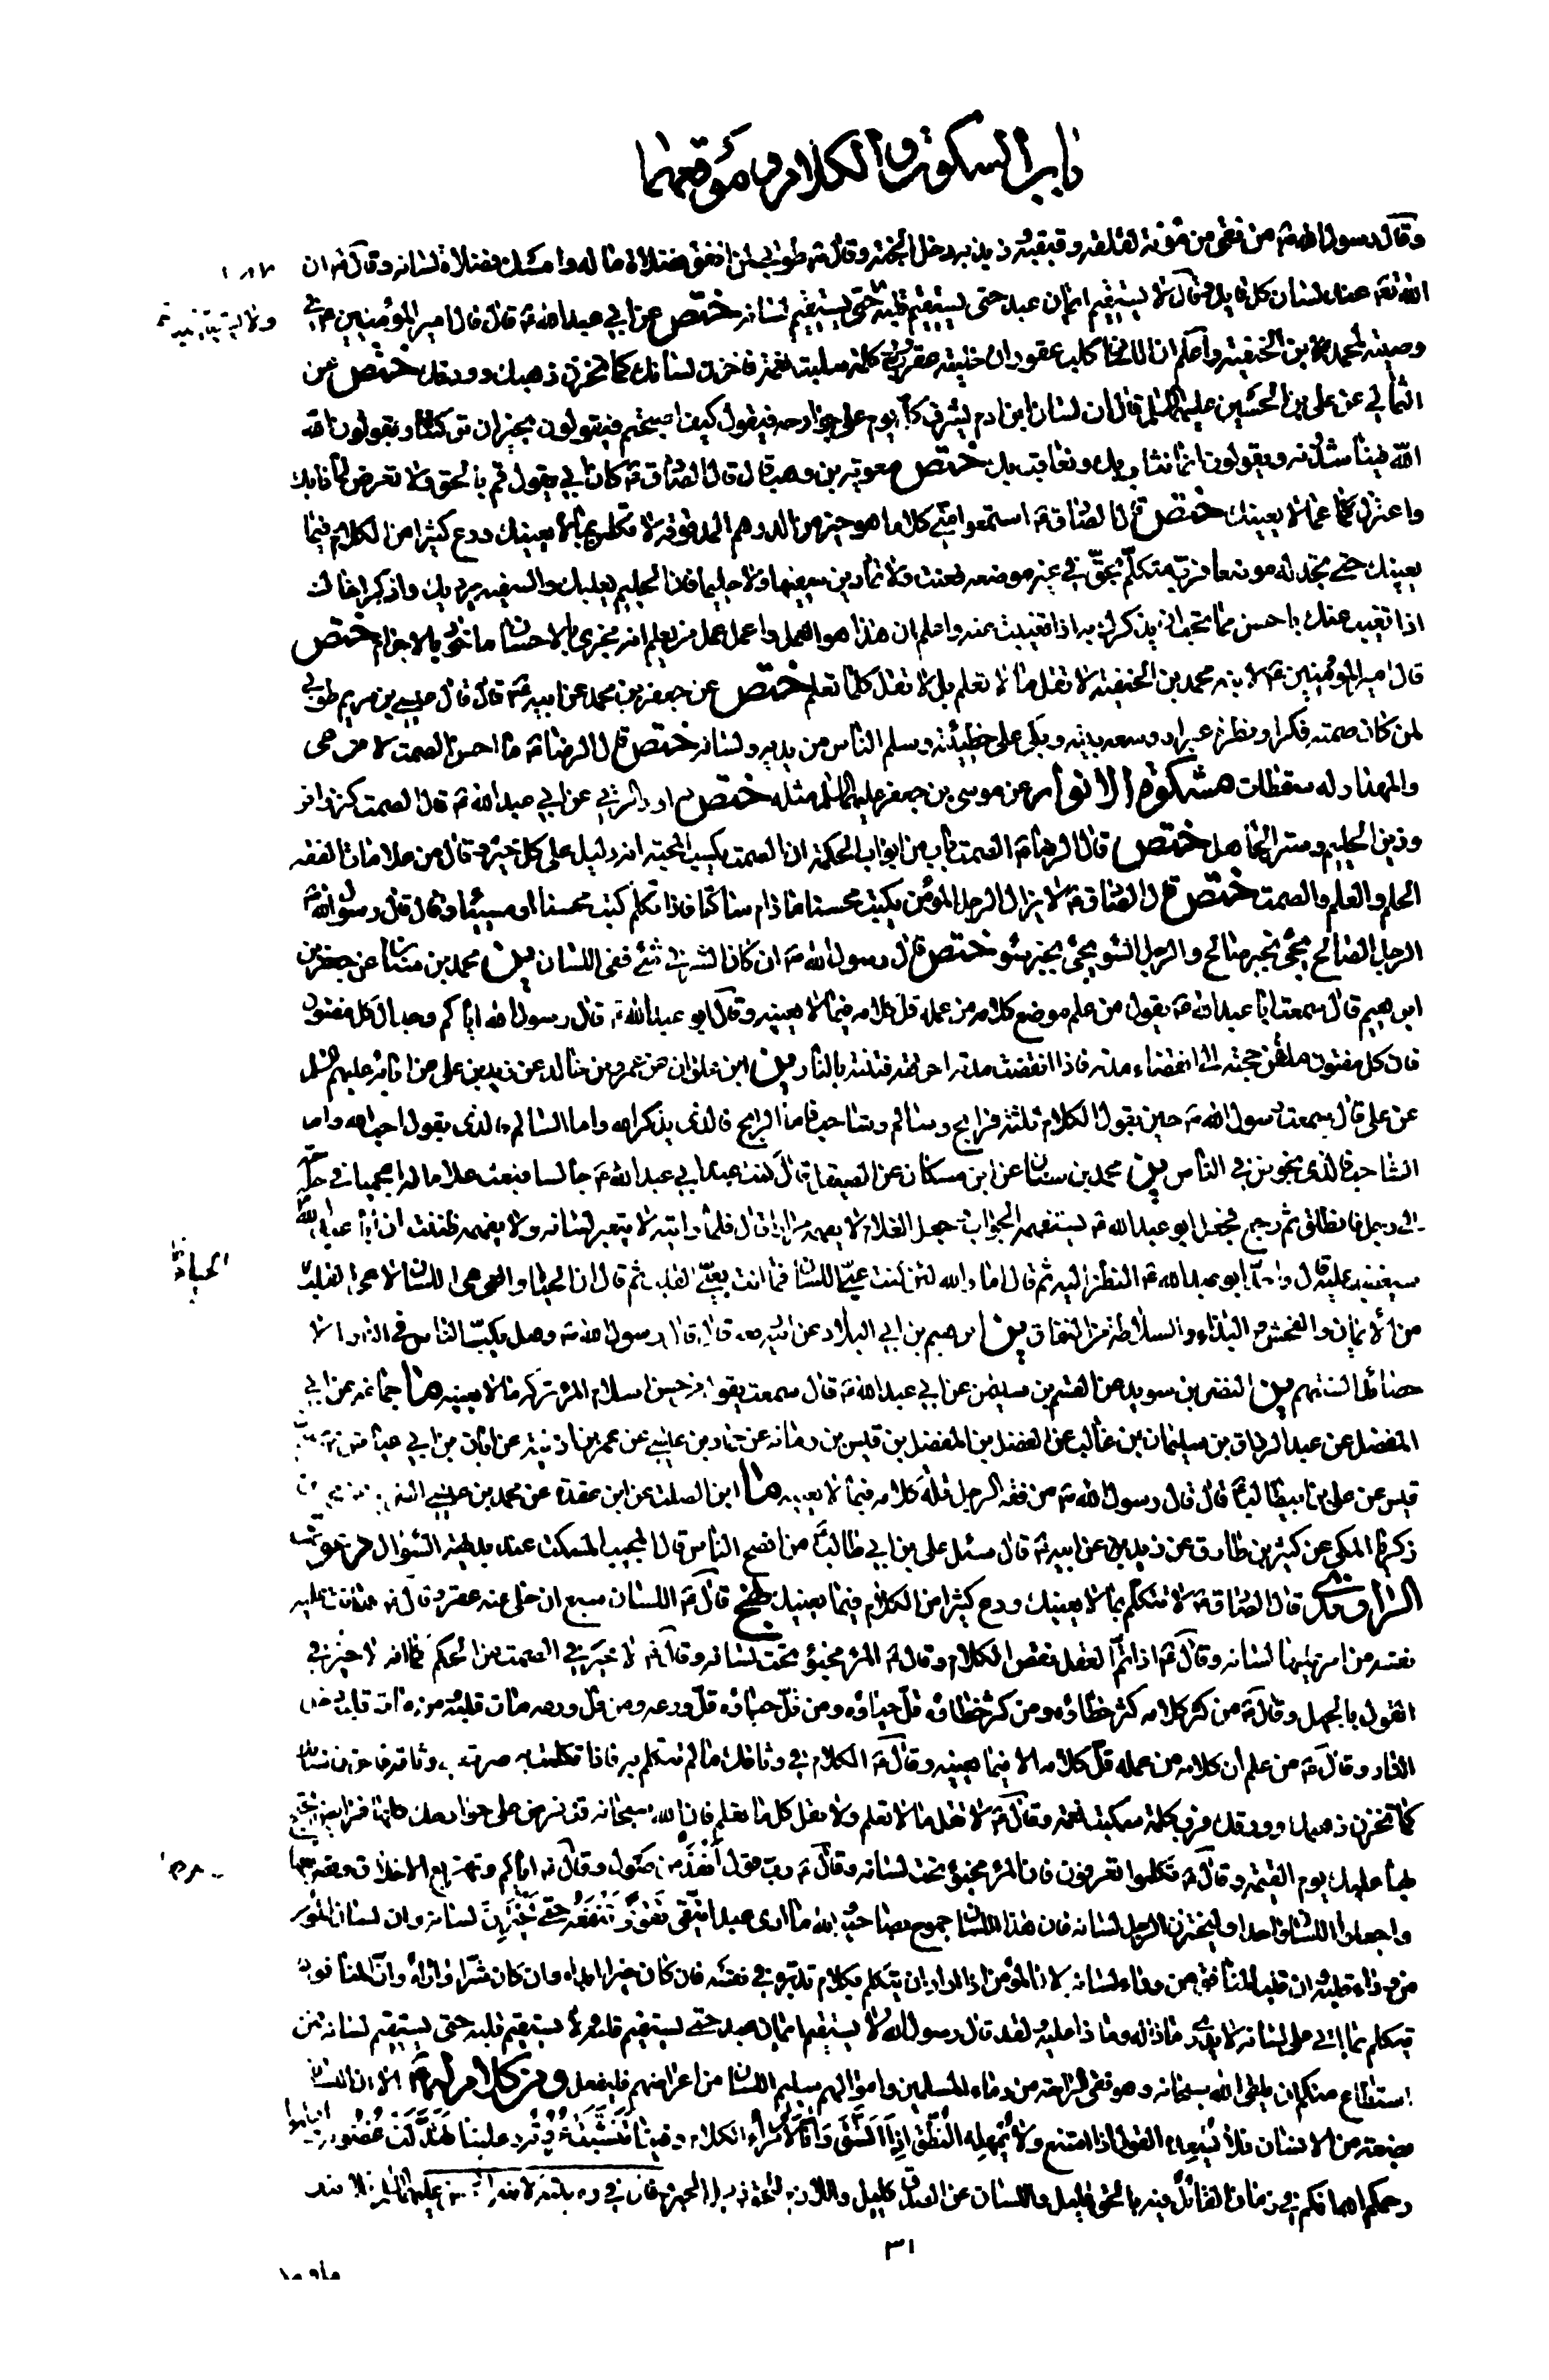 باب السكوت والكلام وموقعهما
وقال رسول الله ص من وقي من مؤنة لقلقه وقبقبه وذبذبه دخل الجنة وقال ص طوبى لمن انفق فضلاة ماله وامسك فضلاة لسانه وقال ص ان
الله تعالى عند لسان كل قايل وقال لا يستقيم ايمان عبد حتى يستقيم قلبه حتى يستقيم لسانه ختص عن ابي عبدالله ع قال قال امير المؤمنين ع في
وصيته لمحمد بن الحنفية واعلم ان اللسان كلب عقور ان خليته عقر ورب كلمة سلبت نعمة فاخزن لسانك كما تخزن ذهبك وورقك ختص عن
الثمالي عن علي بن الحسين عليهما السلم قال ان لسان ابن ادم يشرف كل يوم على جوارحه فيقول كيف اصبحتم فيقولون بخير ان تركتنا ويقولون الله
الله فينا ويناشدونه ويقولون انما نثاب بك ونعاقب بك ختص معوية بن وهب قال قال الصادق ع كان ابي يقول قم بالحق ولا تعرض لما فاتك
واعتزل عما لا يعنيك ختص قال الصادق ع استمعوا مني كلاما هو خير من الدرهم المدقوقة لا تكلم بما لا يعنيك ودع كثيرا من الكلام فيما
يعينك حتى تجد له موضعا فرب متكلم بحق في غير موضعه فعنت ولا تمارين سفيها ولا حليما فان الحليم يغلبك والسفيه يرديك واذكر اخاك
اذا تغيب عنك باحسن مما تحب ان يذكرك به اذا تغيبت عنه واعلم ان هذا هو العمل واعمل عمل من يعلم انه مجزى بالاحسان ماخوذ بالاجرام ختص
قال امير المؤمنين ع لابنه محمد بن الحنفية لا تقل ما لا تعلم بل لا تقل كلما تعلم ختص عن جعفر بن محمد عن ابيه ع قال قال عيسى بن مريم طوبى
لمن كان صمته فكرا ونظره عبرا ووسعه بيته وبكى على خطيئته وسلم الناس من يديه ولسانه ختص قال الرضا ع ما احسن الصمت لا من عى
والمهذار له سقطات مشكوة الانوار عن موسى بن جعفر عليهما السلم مثله ختص داود الرقي عن ابي عبدالله ع قال الصمت كنز وافر
وزين الحليم وستر الجاهل ختص قال الرضا ع الصمت باب من ابواب الحكمة ان الصمت يكسب المحبة انه دليل على كل خير وقال من علامات الفقه
الحلم والعلم والصمت ختص قال الصادق ع لا يزال الرجل المؤمن يكتب محسنا ما دام ساكتا فاذا تكلم كتب محسنا او مسيئا وقال قال رسول الله ص
الرجل الصالح يجئ بخبر صالح والرجل السوء يجئ بخبر سوء ختص قال رسول الله ص ان كان الشر في شئ ففى اللسان ين محمد بن سنان عن جعفر بن
ابرهيم قال سمعت ابا عبدالله ع يقول من علم موضع كلامه من عمله قل كلامه فيما لا يعنيه وقال ابو عبدالله ع قال رسول الله اياكم وجدال كل مفتون
فان كل مفتون ملقن حجته الى انقضاء مدته فاذا انقضت مدته احرقته فتنته بالنار ين ابن علوان عن عمرو بن خالد عن زيد بن علي عن ابائه عليهم السلم
عن علي قال سمعت رسول الله ص حين يقول الكلام ثلثة فرابح وسالم وشاحب فاما الرابح فالذى يذكر الله واما السالم فالذى يقول احب الله واما
الشاحب فالذى يخوض في الناس ين محمد بن سنان عن ابن مسكان عن الصيقل قال كنت عند ابي عبدالله ع جالسا فبعث غلاما له اعجميا في حاجة
الى رجل فانطلق ثم رجع فجعل ابو عبدالله ع يستفهمه الجواب وجعل الغلام لا يفهمه مرارا قال فلما رايته لا يتعبر لسانه ولا يفهمه ظننت ان ابا عبدالله
سيغضب عليه قال واحد ابو عبدالله ع النظر اليه ثم قال اما والله لئن كنت عيي اللسان فما انت بعيي القلب ثم قال ان الحيا والعى عى اللسان لا عى القلب
من الايمان والفحش والبذاء والسلاطة من النفاق ين ابرهيم بن ابي البلاد عن ابيه رفعه قال قال رسول الله ص وهل يكب الناس في النار الا
حصائد السنتهم ين النضر بن سويد عن القسم بن سليمن عن ابي عبدالله ع قال سمعته يقول من حسن اسلام المرء تركه ما لا يعنيه ما جماعة عن ابي
المفضل عن عبدالرزاق بن سليمان بن غالب عن الفضل بن المفضل بن قيس بن رمانة عن حماد بن عيسى عن عمر بن اذينة عن ابان بن ابي عياش
قيس عن علي بن ابيطالب ع قال قال رسول الله ص من فقه الرجل قلة كلامه فيما لا يعنيه ما ابن الصلت عن ابن عقدة عن محمد بن عيسى
زكريا المكي عن كثير بن طارق عن زيد بن علي عن ابيه ع قال سئل علي بن ابي طالب ع من افصح الناس قال المجيب المسكت عند بديهة السؤال
الراوندي قال الصادق ع لا تتكلم بما لا يعنيك ودع كثيرا من الكلام فيما يعنيك نهج قال ع اللسان سبع ان خلى عنه عقر وقال ع هانت عليه
نفسه من امر عليها لسانه وقال ع اذا تم العقل نقص الكلام وقال ع المرء مخبوء تحت لسانه وقال ع لا خير في الصمت عن الحكم كما انه لا خير في
القول بالجهل وقال ع من كثر كلامه كثر خطاؤه ومن كثر خطاؤه قل حياؤه ومن قل حياؤه قل ورعه ومن قل ورعه مات قلبه ومن مات قلبه دخل
النار وقال ع من علم ان كلامه من عمله قل كلامه الا فيما يعنيه وقال ع الكلام في وثاقك ما لم تتكلم به فاذا تكلمت به صرت في وثاقه فاخزن لسانك
كما تخزن ذهبك وورقك فرب كلمة سلبت نعمة وقال ع لا تقل ما لا تعلم ولا تقل كل ما تعلم فان الله سبحانه قد فرض على جوارحك كلها فرائض يحتج
بها عليك يوم القيمة وقال ع تكلموا تعرفون فان المرء مخبوء تحت لسانه وقال ع رب قول انفذ من صول وقال ع اياكم وتهزيع الاخلاق وتصريفها
واجعلوا اللسان واحدا وليخزن الرجل لسانه فان هذا اللسان جموح بصاحبه والله ما ارى عبدا يتقى تقوى تنفعه حتى يختزن لسانه وان لسان المؤمن
من وراء قلبه وان قلب المنافق من وراء لسانه لان المؤمن اذا اراد ان يتكلم بكلام تدبره في نفسه فان كان خيرا ابداه وان كان شرا واراه وان المنافق
يتكلم بما اتى على لسانه لا يدرى ما ذا له وما ذا عليه ولقد قال رسول الله لا يستقيم ايمان عبد حتى يستقيم قلبه ولا يستقيم قلبه حتى يستقيم لسانه فمن
استطاع منكم ان يلقى الله سبحانه وهو نقى الراحة من دماء المسلمين واموالهم سليم اللسان من اعراضهم فليفعل ومن كلام له ع الا ان اللسان
بضعة من الانسان فلا يسعده القول اذا امتنع ولا يمهله النطق اذا اتسع وانا لامراء الكلام وفينا تنشبت عروقه وعلينا تهدلت غصونه واعلموا
رحمكم الله انكم في زمان القائل فيه بالحق قليل واللسان عن الصدق كليل واللازم للحق ذليل
٣١